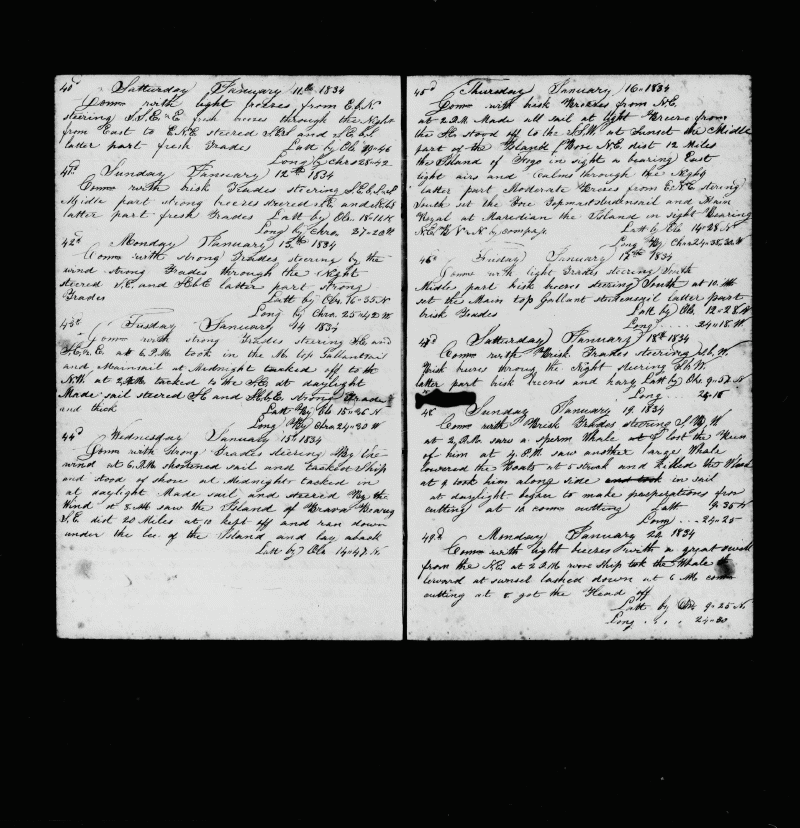 40d Satturday January 11th 1834
Coms with light breezes from E.b.N
steering S.S.E. & E fresh breezes through the Night
from East to E.N.E steered S.E.b.S and S.E.b.E
latter part fresh Trades Latt by Ob 19-46
Long by Chro 28-42
41d Sunday January 12th 1834
Coms with brisk Trades steering S.E.b.S
Midle part strong breezes steered S.E and
latter part fresh Trades Latt by Ob. 18-14 N
Long by Chro 27-20 W
42d Monday January 13th 1834
Coms with strong Trades steering by the
wind strong Trades through the Night
steered S.E. and S.b.E latter part strong
Trades Latt by Ob. 16-35 N
Long by Chro 25-42 W
43d Tusday January 14 1834
Coms with strong Trades steering S.E and
at 6 P.M took in the M. top Gallantsail
and Mainsail at Midnight tacked off to the
N.W. at 2 A.M tacked to the S.E at daylight
Made sail steered SE and S.E.b.E strong Trades
and thick Latt By Ob 15-35 N
Long By Chro 24-30 W
44d Wednesday January 15th 1834
Coms with strong Trades steering By the
wind at 6 P.M shortened sail and tacked Ship
and stood of shore at Midnight tacked in
at daylight Made sail and steered By the
Wind at 8 M saw the Island of Brava Bearing
S.E. dist 20 Miles at 10 kept off and ran down
under the lee of the Island and lay aback
Latt by Ob 14-47 N
45d Thursday January 16-1834
Coms with brisk Breezes from N.E.
at 2 P.M Made all sail at light Breeze from
the SE stood off to the S.S.W. at Sunset the Middle
part of the Island Bore N.E dist 12 Miles
the Island of Fogo in sight a bearing East
light airs and Calms through the Night
latter part Moderate Breeies from E.N.E stering
South set the Fore Topmaststudensail and Main
Royal at Maredian the Island in sight Bearing
N.E. b N. N by compass. Latt by Ob 14-28 N
Long By Chro 24-38-30 W
46d Friday January 17th 1834
Coms with light Trades steering South
Midle part brisk breezes steering South at 10. M
set the Main top Gallant studensail latter part
brisk Trades Latt by Ob. 12-28 N
Long 24-18 W
47d Satterday January 18th 1834
Coms with Brisk Trades steering S.b.W.
Brisk breezes throug the Night steering S.b.W.
latter part brisk breezes and hazy Latt by Ob. 9-57 N
Long 24-18
48 Sunday January 19 1834
Coms with Brisk Trades steering S. By W
at 2 P.M. saw a sperm Whale at lost the Run
of him at 4 P.M saw another large Whale
lowered the Boats at 5 struck and Killed the Whale
at 9 took him along side and took in sail
at daylight began to make preperations for
cutting at 10 coms cutting Latt 9.35 N
Long ... 24-25
49d Monday January 22 1834
Coms with light breezes with a great swell
from the N.E at 2 P.M wore ship took the Whale to
leward at sunset lashed down at 6 M coms
cutting at 8 got the Head off
Latt by Ob 9-25 N.
Long . . . 24-30